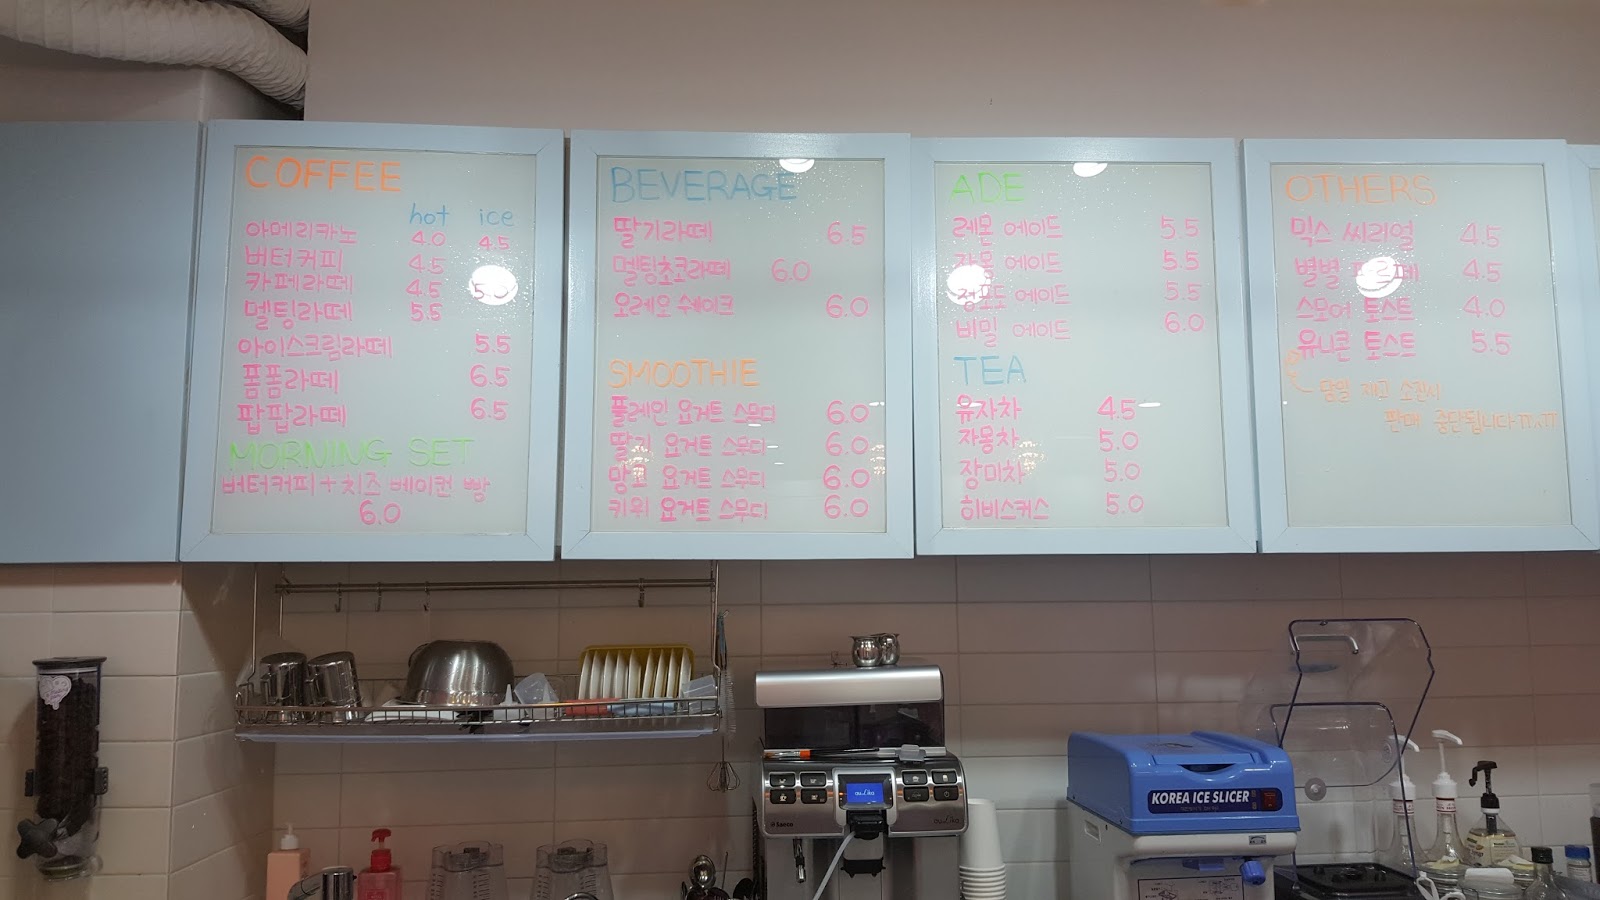 COFFEE
hot ice
아메리카노 4.0 4.5
버터커피 4.5
카페라떼 4.5 5.0
멜팅라떼 5.5
아이스크림라떼 5.5
폼폼라떼 6.5
팝팝라떼 6.5
MORNING SET
버터커피+치즈 베이컨 빵
6.0
BEVERAGE
딸기라떼 6.5
멜팅초코라떼 6.0
오레오 쉐이크 6.0
SMOOTHIE
플레인 요거트 스무디 6.0
딸기 요거트 스무디 6.0
망고 요거트 스무디 6.0
키위 요거트 스무디 6.0
ADE
레몬 에이드 5.5
자몽 에이드 5.5
청포도 에이드 5.5
비밀 에이드 6.0
TEA
유자차 4.5
자몽차 5.0
장미차 5.0
히비스커스 5.0
OTHERS
믹스 씨리얼 4.5
별별 4.5
스모어 토스트 4.0
유니콘 토스트 5.5
당일 재고 소진시
판매 중단됩니다ㅠ.ㅠ
KOREA ICE SLICER
Saeco